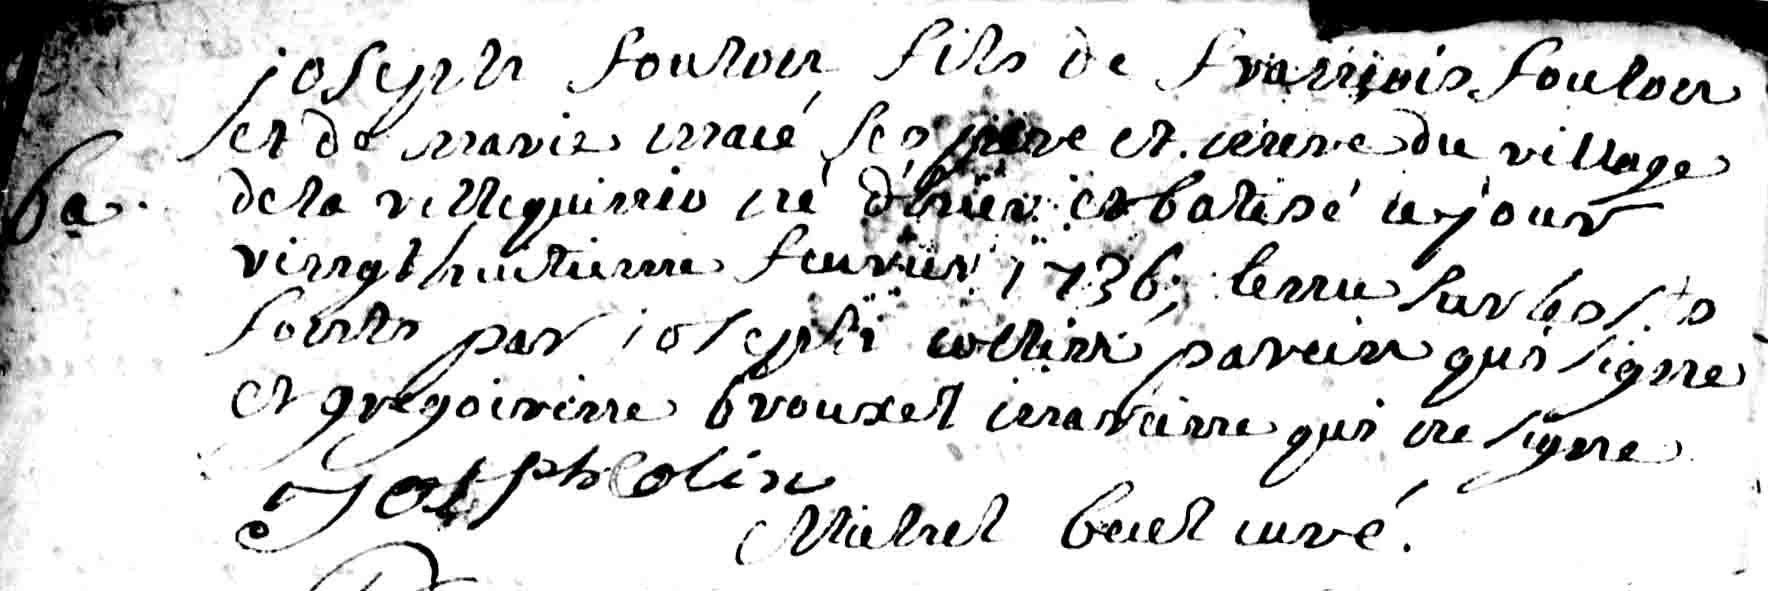 joseph soulon fils de francois soulon
et de marie maié ses pere et mere du village
ba. de la villequinio né d'hier et batisé ce jour
vingt huitieme feuvrier 1736, tenu sur les sts
fonts par joseph collin parein qui signe
et gregoirinne brouxel maraine qui ne signe
Joseph Colin
Michel curé.